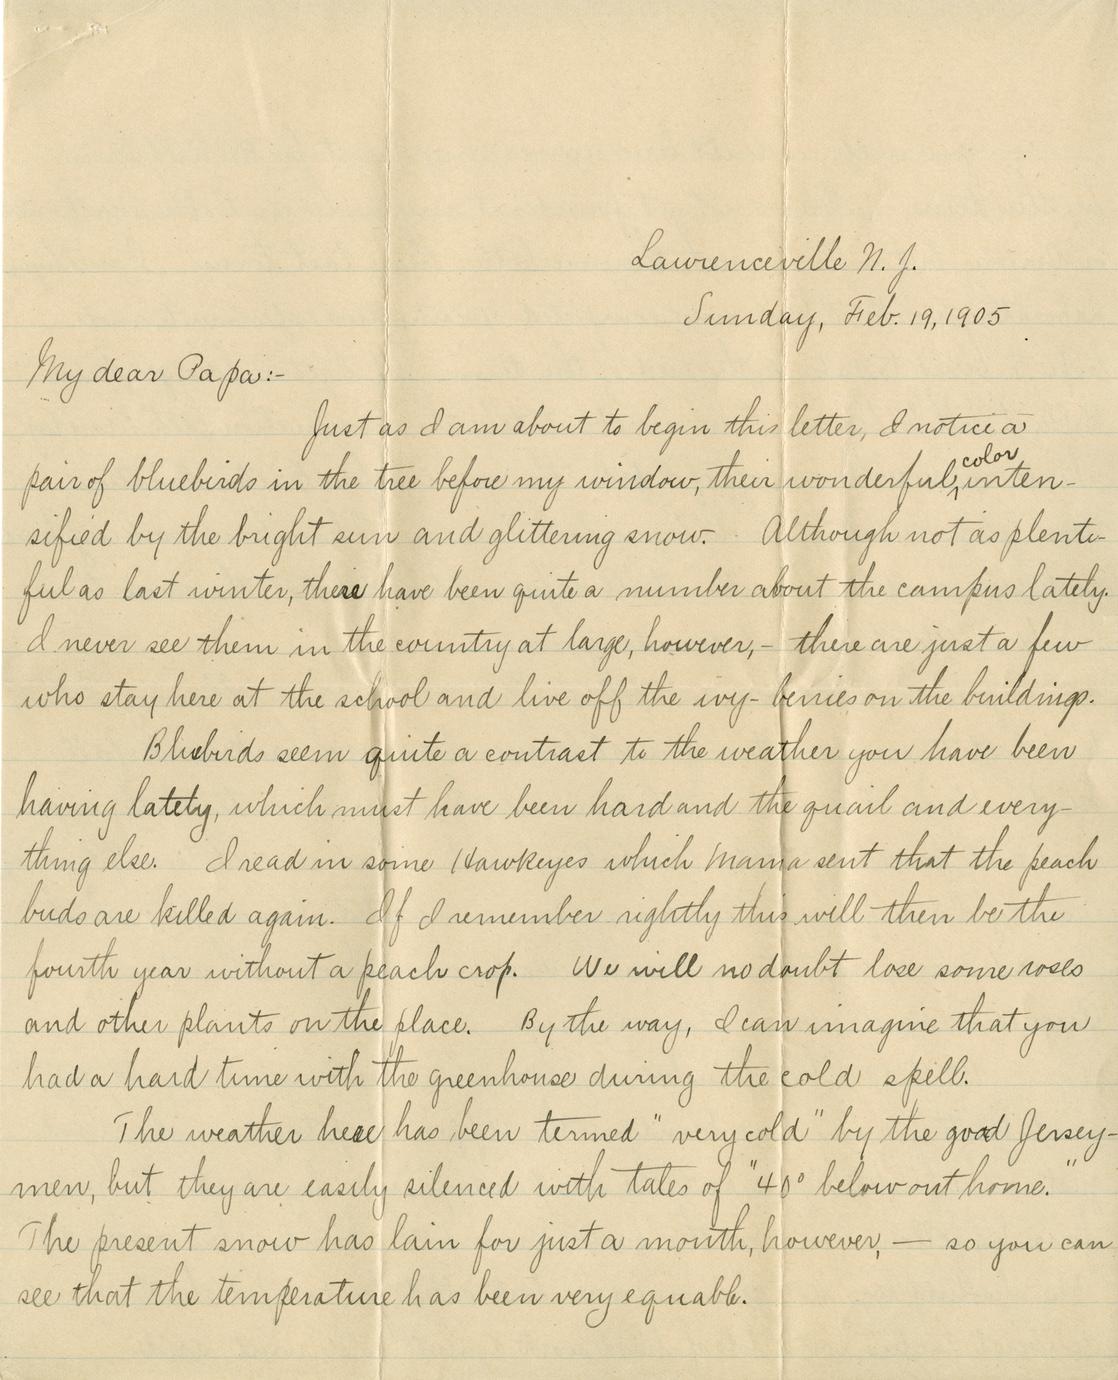 Lawrenceville N. J.
Sunday, Feb. 19, 1905
My dear Papa:-
Just as I am about to begin this letter, I notice a
pair of bluebirds in the tree before my window, their wonderful color inten-
sified by the bright sun and glittering snow. Although not as plenti-
ful as last winter, there have been quite a number about the campus lately.
I never see them in the country at large, however,- there are just a few
who stay here at the school and live off the ivy-berries on the buildings.
Bluebirds seem quite a contrast to the weather you have been
having lately, which must have been hard and the quail and every-
thing else. I read in some Hawkeyes which Mama sent that the peach
buds are killed again. If I remember rightly this will then be the
fourth year without a peach crop. We will no doubt lose some roses
and other plants on the place. By the way, I can imagine that you
had a hard time with the greenhouse during the cold spell.
The weather here has been termed "very cold" by the good Jersey-
men, but they are easily silenced with tales of "40° below out home."
The present snow has lain for just a month, however, — so you can
see that the temperature has been very equable.